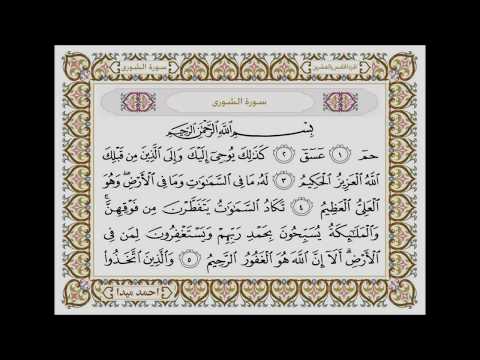 سورة الشورى
الجزء الخامس والعشرون
سورة الشورى
بِسْمِ اللَّهِ الرَّحْمَٰنِ الرَّحِيمِ
حمٓ ١ عٓسٓقٓ ٢ كَذَٰلِكَ يُوحِىٓ إِلَيْكَ وَإِلَى ٱلَّذِينَ مِن قَبْلِكَ
ٱللَّهُ ٱلْعَزِيزُ ٱلْحَكِيمُ ٣ لَهُۥ مَا فِى ٱلسَّمَٰوَٰتِ وَمَا فِى ٱلْأَرْضِ ۖ وَهُوَ
ٱلْعَلِىُّ ٱلْعَظِيمُ ٤ تَكَادُ ٱلسَّمَٰوَٰتُ يَتَفَطَّرْنَ مِن فَوْقِهِنَّ ۚ
وَٱلْمَلَٰٓئِكَةُ يُسَبِّحُونَ بِحَمْدِ رَبِّهِمْ وَيَسْتَغْفِرُونَ لِمَن فِى
ٱلْأَرْضِ ۗ أَلَآ إِنَّ ٱللَّهَ هُوَ ٱلْغَفُورُ ٱلرَّحِيمُ ٥ وَٱلَّذِينَ ٱتَّخَذُوا۟
احمد ميدا